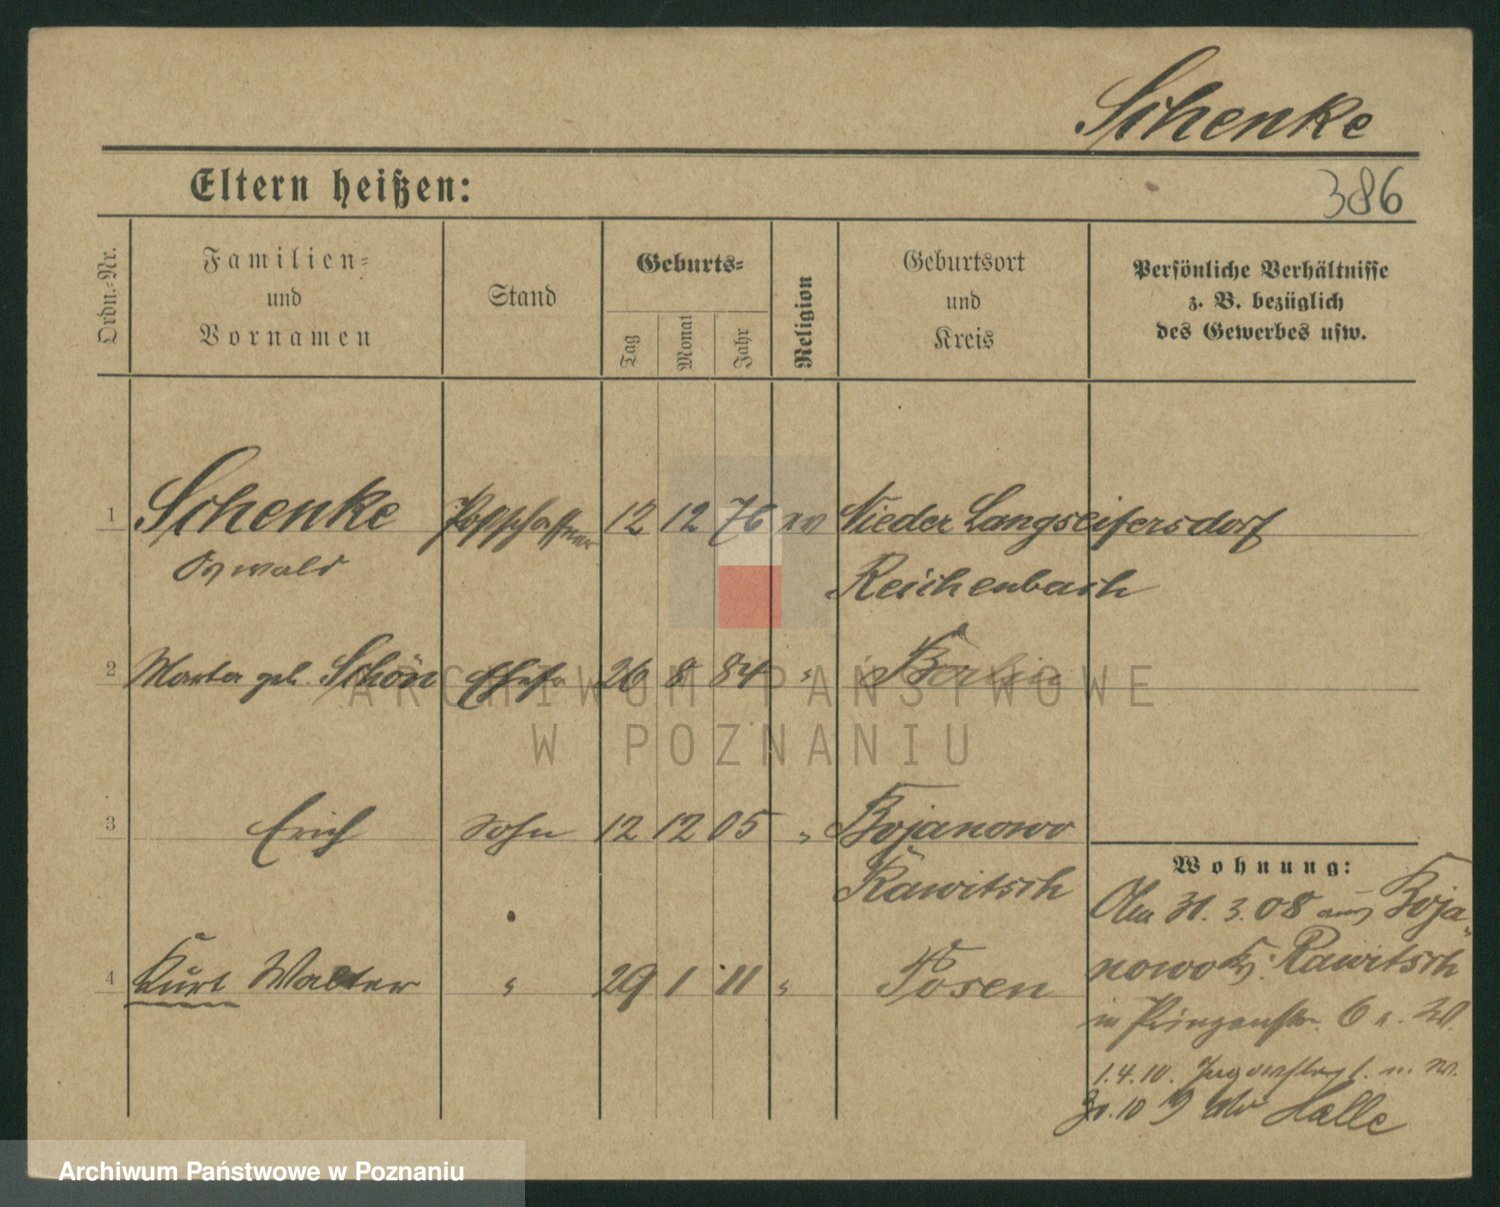 Schenke
Eltern heißen:
386
Ordn.-Nr.
Familien-
und
Vornamen
Stand
Geburts-
Tag
Monat
Jahr
Religion
Geburtsort
und
Kreis
Persönliche Verhältnisse
z. B. bezüglich
des Gewerbes usw.
1 Schenke Postschaffner 12 12 76 ev Nieder Langseifersdorf
Oswald Reichenbach
2 Marta geb. Schön Ehefr 26 8 84 " Berlin
ARCHIWUM PAŃSTWOWE
W POZNANIU
3 Erich Sohn 12 12 05 " Bojanowo
Rawitsch
Wohnung:
31. 3. 08 aus Boja-
nowo Kr. Rawitsch
in Prinzenstr. 6
4 Kurt Walter " 29 1 11 " Posen
1.4.10.
Halle
Archiwum Państwowe w Poznaniu